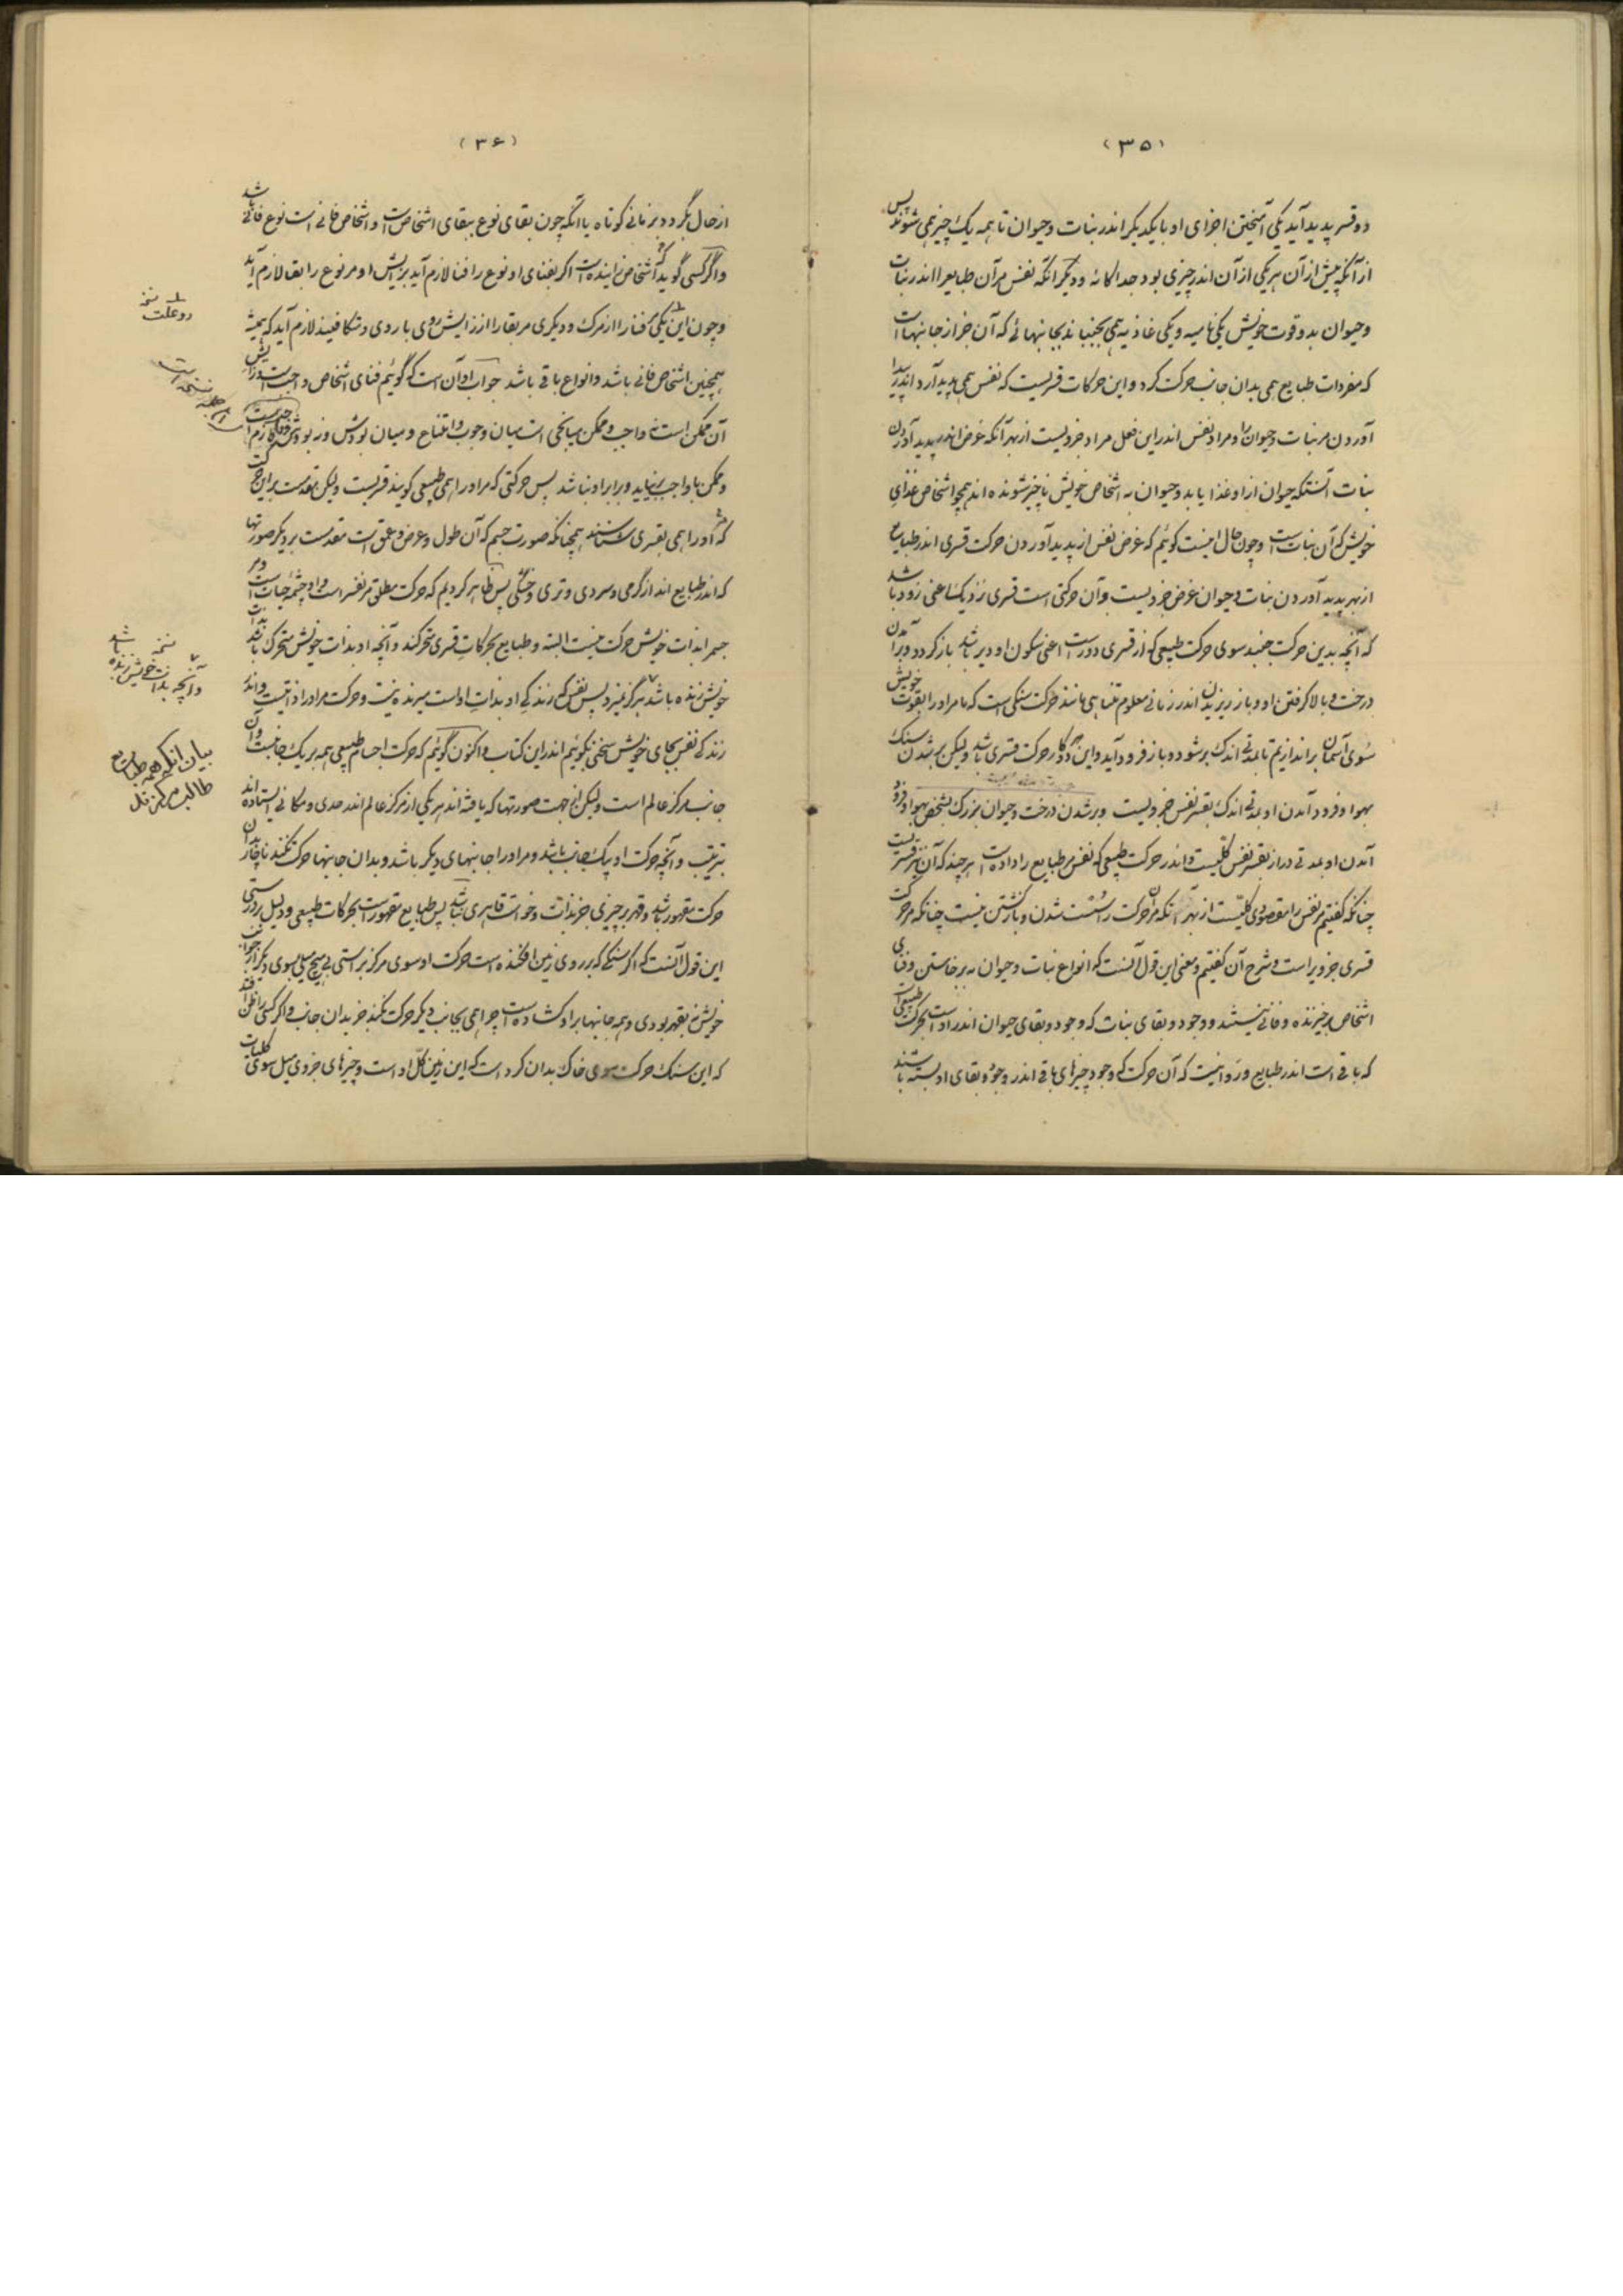 (۳۵)
دو قسر پدید آید یکی آمیختن اجزای او با یکدیگر اندر نبات و حیوان تا همه یک چیز همی شوند پس
از آنکه پیش از آن هر یکی از آن اندر چیزی بود جداگانه و دیگر آنکه نفس مر آن طبایع را اندر نبات
و حیوان بدو قوت خویش یکی نامیه و یکی غاذیه همی بجنباند بجانبهائی که آن جز از جانبهاست
که مفردات طبایع همی بدان جانب حرکت کرد و این حرکات قسریست که نفس همی پدید آرد اندر پیدا
آوردن مر نبات و حیوان را و مراد نفس اندر این فعل مراد جزویست از بهر آنکه غرض اندر پدید آوردن
نبات آنستکه حیوان از او غذا یابد و حیوان به اشخاص خویش ناچیز شونده اند همچو اشخاص غذای
خویش که آن نبات است و چون حال اینست گوئیم که غرض نفس از پدید آوردن حرکت قسری اندر طبایع
از بهر پدید آوردن نبات و حیوان غرض جزویست و آن حرکتی است قسری نزدیک اعنی زود باشد
که آنچه بدین حرکت جنبد سوی حرکت طبیعی که از قسری دور است اعنی سکون او دیر باشد بازگردد و برآمدن
درخت و بالا گرفتن او و باز ریزیدن اندر زمانی معلوم متناهی مانند حرکت سنگی است که ما مر او را بقوت خویش
سوی آسمان براندازیم تا بمدتی اندک بر شود و باز فرود آید و این هر دو کار حرکت قسری باشد ولیکن بر شدن سنگ
بهوا و فرود آمدن او بمدتی اندک بقسر نفس جزویست و بر شدن درخت و حیوان بزرگ بشخص بهوا و فرود
آمدن او بمدتی دراز بقسر نفس کلیست و اندر حرکت طبیعی که نفس مر طبایع را داده است هر چند که آن نیز قسریست
چنانکه گفتیم مر نفس را مقصودی کلیست از بهر آنکه مر آن حرکت را سست شدن و بازگشتن نیست چنانکه مر حرکت
قسری جزویراست و شرح آن گفتیم و معنی این قول آنست که انواع نبات و حیوان به برخاستن و فنای
اشخاص برخیزنده و فانی نیستند و وجود و بقای نبات که وجود و بقای حیوان اندر اوست بحرکت طبیعی است
که باقی است اندر طبایع و روا نیست که آن حرکت که وجود چیزهای باقی اندر وجود و بقای او بسته باشند
(۳۶)
از حال بگردد بزمانی کوتاه با آنکه چون بقای نوع ببقای اشخاص است و اشخاص فانی است نوع فانی باشد
و اگر کسی گوید که اشخاص زاینده است اگر بفنای او نوع را فنا لازم آید بزایش او مر نوع را بقا لازم آید
و چون این یکی مر فنا را از مرگ و دیگری مر بقا را از زایش روی با روی و متکافیند لازم آید که همیشه
همچنین اشخاص فانی باشد و انواع باقی باشد جواب او آن است که گوئیم فنای اشخاص واجب است و زایش
آن ممکن است نه واجب و ممکن میانجی است میان وجوب و امتناع و میان بودش و نابودش
و ممکن با واجب برنیاید و برابر او نباشد پس حرکتی که مر او را همی طبیعی گویند قسریست ولیکن مقدمست بر این حرکت
که مر او را همی بقسری شناسند همچنانکه صورت جسم که آن طول و عرض و عمق است مقدمست بر دیگر صورتها
که اندر طبایع اند از گرمی و سردی و تری و خشکی پس ظاهر کردیم که حرکت مطلق مر نفس راست و او چشمه حیات است و مر
جسم را بذات خویش حرکت نیست البته و طبایع بحرکات قسری متحرکند و آنچه او بذات خویش متحرک باشد بذات
خویش زنده باشد هرگز نمیرد پس نفس که زندگی او بذات اوست میرنده نیست و حرکت مر او را ذاتیست و اندر
زندگی نفس بجای خویش سخن بگوئیم اندر این کتاب و اکنون گوئیم که حرکت اجسام طبیعی همه بر یک جانبست و آن
جانب مرکز عالم است ولیکن از جهت صورتها که یافته اند هر یکی از مرکز عالم اندر حدی و مکانی ایستاده اند
بترتیب و آنچه حرکت او بیک جانب باشد و مر او را جانبهای دیگر باشد و بدان جانبها حرکت نکند ناچار بدان
حرکت مقهور باشد و قهر بر چیزی جز بذات و خواست قاهری نباشد پس طبایع مقهور است بحرکات طبیعی و دلیل بر درستی
این قول آنست که اگر سنگی که بر روی زمین افکنده است حرکت او سوی مرکز براستی بی هیچ میلی بسوی دیگر از جوانب
خویش نه بقهر بودی و همه جانبها بر او گشاده است چرا همی بجانب دیگر حرکت نکند جز بدان جانب و اگر کسی را ظن افتد
که این سنگ حرکت سوی خاک بدان کرده است که این زمین کل او است و چیزهای جزوی میل سوی کلیات
دو علت نسخه
نسخه
و آنچه بذات خویش زنده باشد
بیان آنکه همه طبایع
طالب مرکز کل